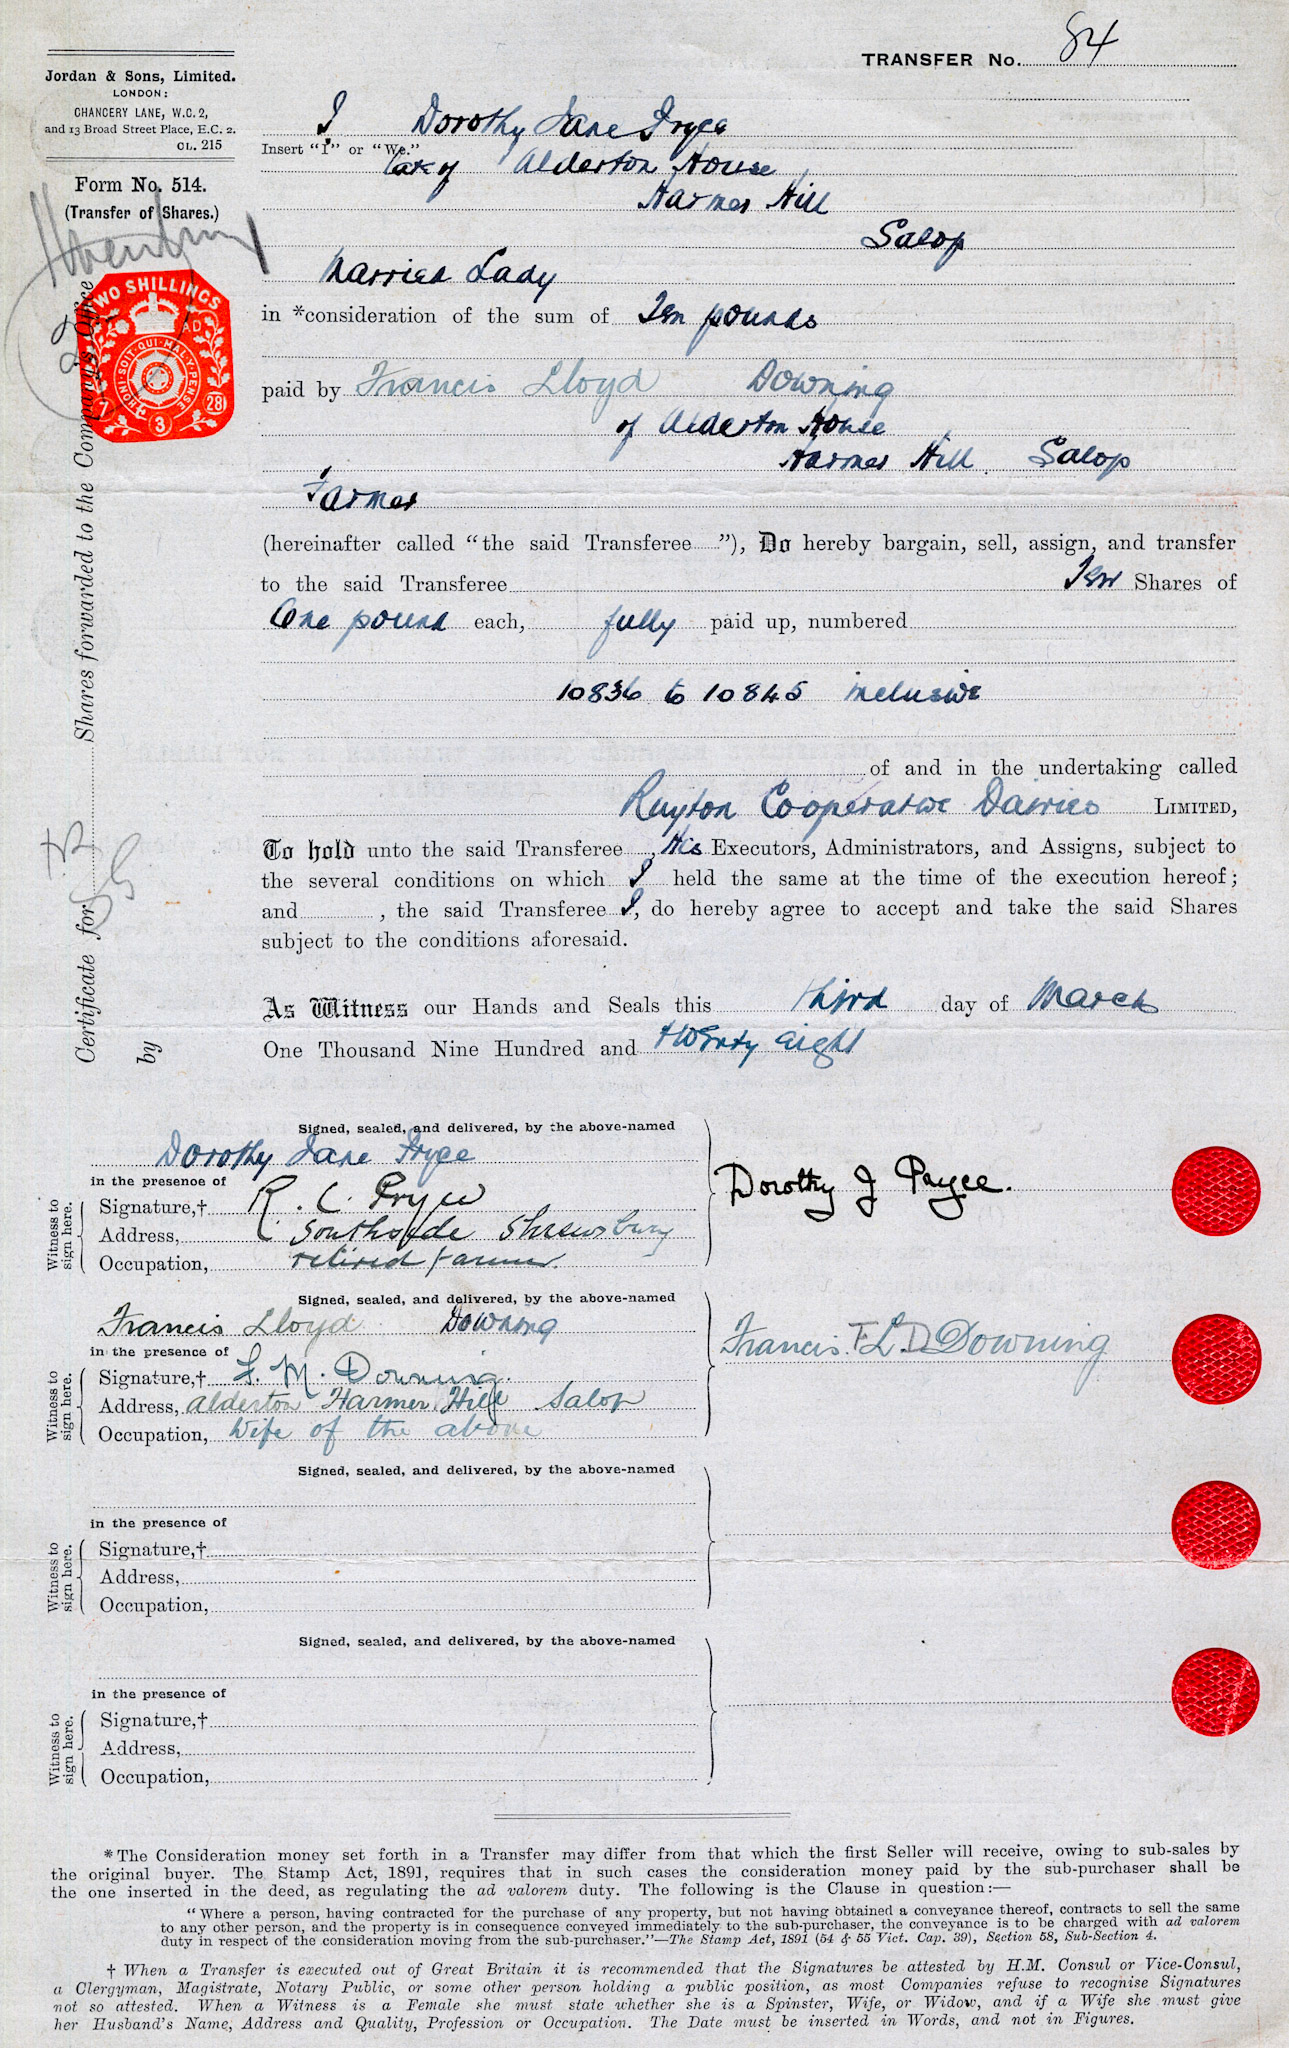 TRANSFER No. 84
Jordan & Sons, Limited.
LONDON:
CHANCERY LANE, W.C. 2,
and 13 Broad Street Place, E.C. 2.
CL. 215
Form No. 514.
(Transfer of Shares.)
TWO SHILLINGS
AD
HONI·SOIT·QUI·MAL·Y·PENSE
7 3 28
I Dorothy Jane Pryce
Insert "I" or "We."
late of Alderton House
Harmer Hill
Salop
Married Lady
in *consideration of the sum of Ten pounds
paid by Francis Lloyd Downing
of Alderton House
Harmer Hill Salop
Farmer
(hereinafter called "the said Transferee "), Do hereby bargain, sell, assign, and transfer
to the said Transferee Ten Shares of
One pound each, fully paid up, numbered
10836 to 10845 inclusive
of and in the undertaking called
Ruyton Cooperative Dairies LIMITED,
To hold unto the said Transferee , His Executors, Administrators, and Assigns, subject to
the several conditions on which I held the same at the time of the execution hereof;
and , the said Transferee I, do hereby agree to accept and take the said Shares
subject to the conditions aforesaid.
As Witness our Hands and Seals this third day of March
One Thousand Nine Hundred and twenty eight
Certificate for Shares forwarded to the Company's Office
by
Signed, sealed, and delivered, by the above-named
Dorothy Jane Pryce
in the presence of
Witness to
sign here.
Signature,† R. C. Pryce
Address, Southside Shrewsbury
Occupation, retired farmer.
Dorothy J Pryce.
Signed, sealed, and delivered, by the above-named
Francis Lloyd Downing
in the presence of
Witness to
sign here.
Signature,† F. M. Downing.
Address, Alderton Harmer Hill Salop
Occupation, Wife of the above
Francis F L. D Downing
Signed, sealed, and delivered, by the above-named
in the presence of
Witness to
sign here.
Signature,†
Address,
Occupation,
Signed, sealed, and delivered, by the above-named
in the presence of
Witness to
sign here.
Signature,†
Address,
Occupation,
*The Consideration money set forth in a Transfer may differ from that which the first Seller will receive, owing to sub-sales by
the original buyer. The Stamp Act, 1891, requires that in such cases the consideration money paid by the sub-purchaser shall be
the one inserted in the deed, as regulating the ad valorem duty. The following is the Clause in question:—
"Where a person, having contracted for the purchase of any property, but not having obtained a conveyance thereof, contracts to sell the same
to any other person, and the property is in consequence conveyed immediately to the sub-purchaser, the conveyance is to be charged with ad valorem
duty in respect of the consideration moving from the sub-purchaser."—The Stamp Act, 1891 (54 & 55 Vict. Cap. 39), Section 58, Sub-Section 4.
† When a Transfer is executed out of Great Britain it is recommended that the Signatures be attested by H.M. Consul or Vice-Consul,
a Clergyman, Magistrate, Notary Public, or some other person holding a public position, as most Companies refuse to recognise Signatures
not so attested. When a Witness is a Female she must state whether she is a Spinster, Wife, or Widow, and if a Wife she must give
her Husband's Name, Address and Quality, Profession or Occupation. The Date must be inserted in Words, and not in Figures.